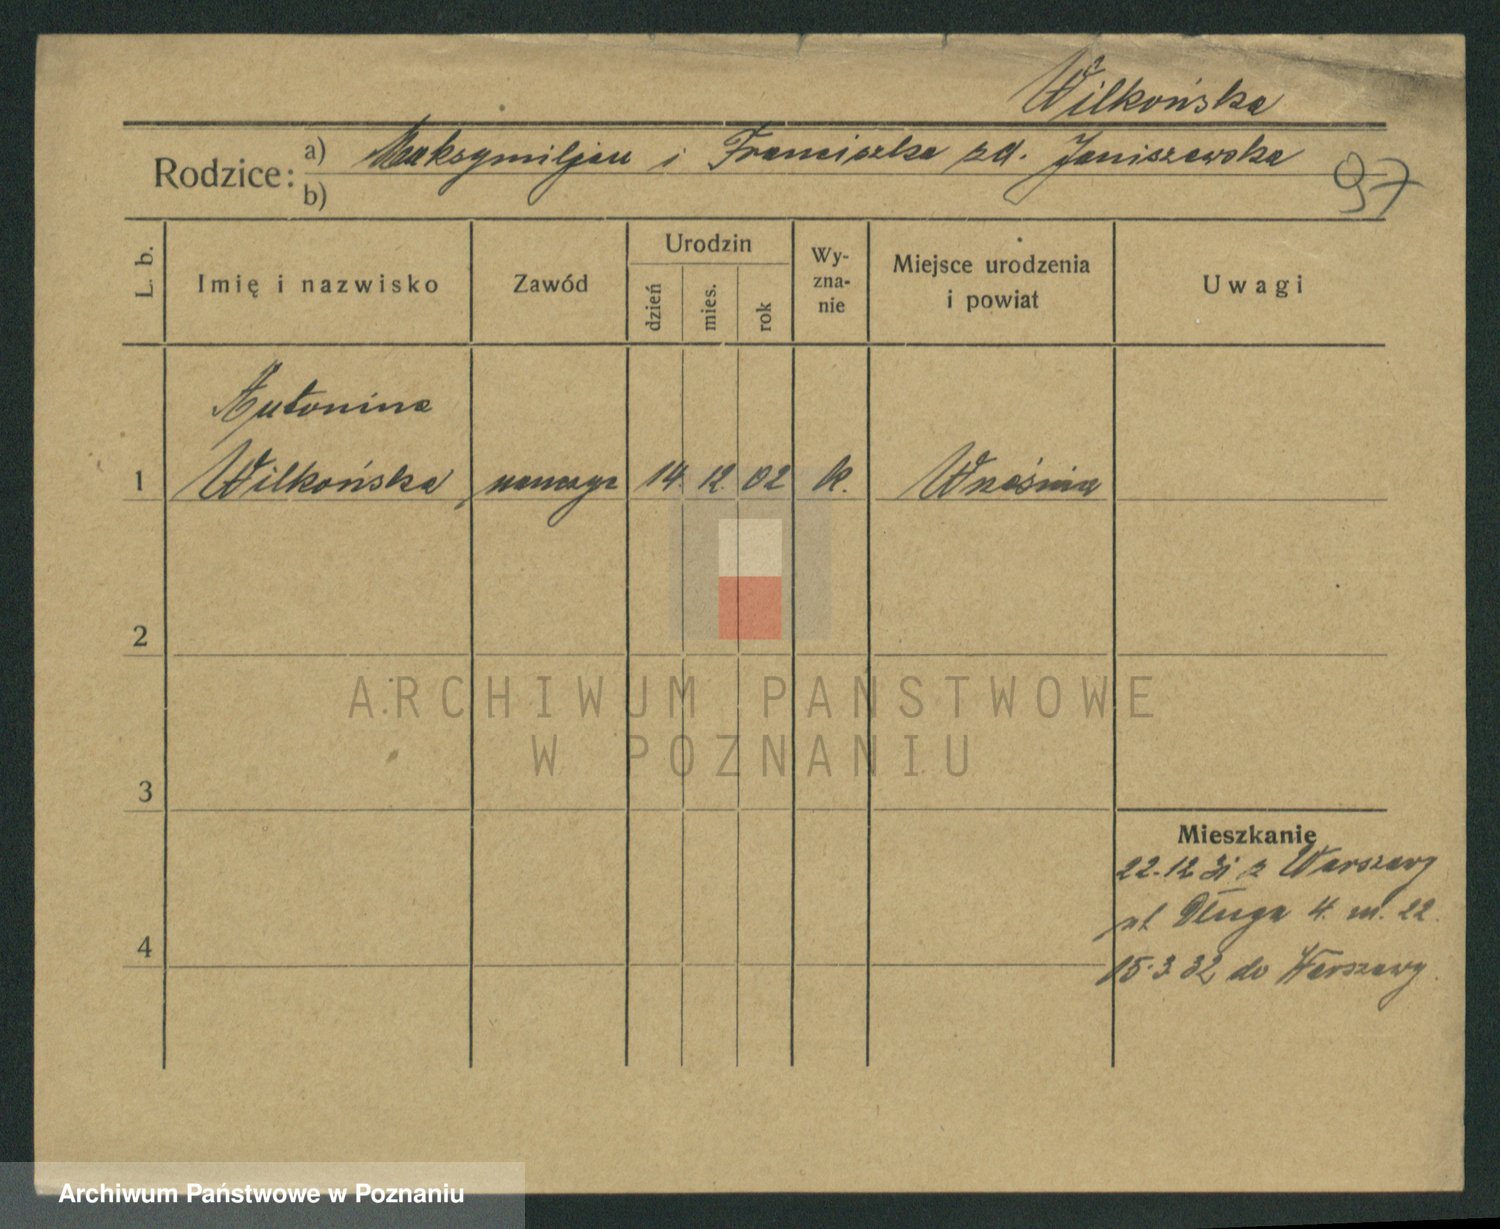 Wilkońska
Rodzice: a) Maksymiljan i Franciszka zd. Janiszewska
b)
97
L. b.
Imię i nazwisko
Zawód
Urodzin
dzień
mies.
rok
Wy-
zna-
nie
Miejsce urodzenia
i powiat
Uwagi
Antonina
1 Wilkońska, nauczyc 14 12 02 k. Września
2
3
4
Mieszkanie
22.12 31 z Warszawy
ul Długa 4. m. 22.
15.3.32 do Warszawy.
ARCHIWUM PAŃSTWOWE
W POZNANIU
Archiwum Państwowe w Poznaniu